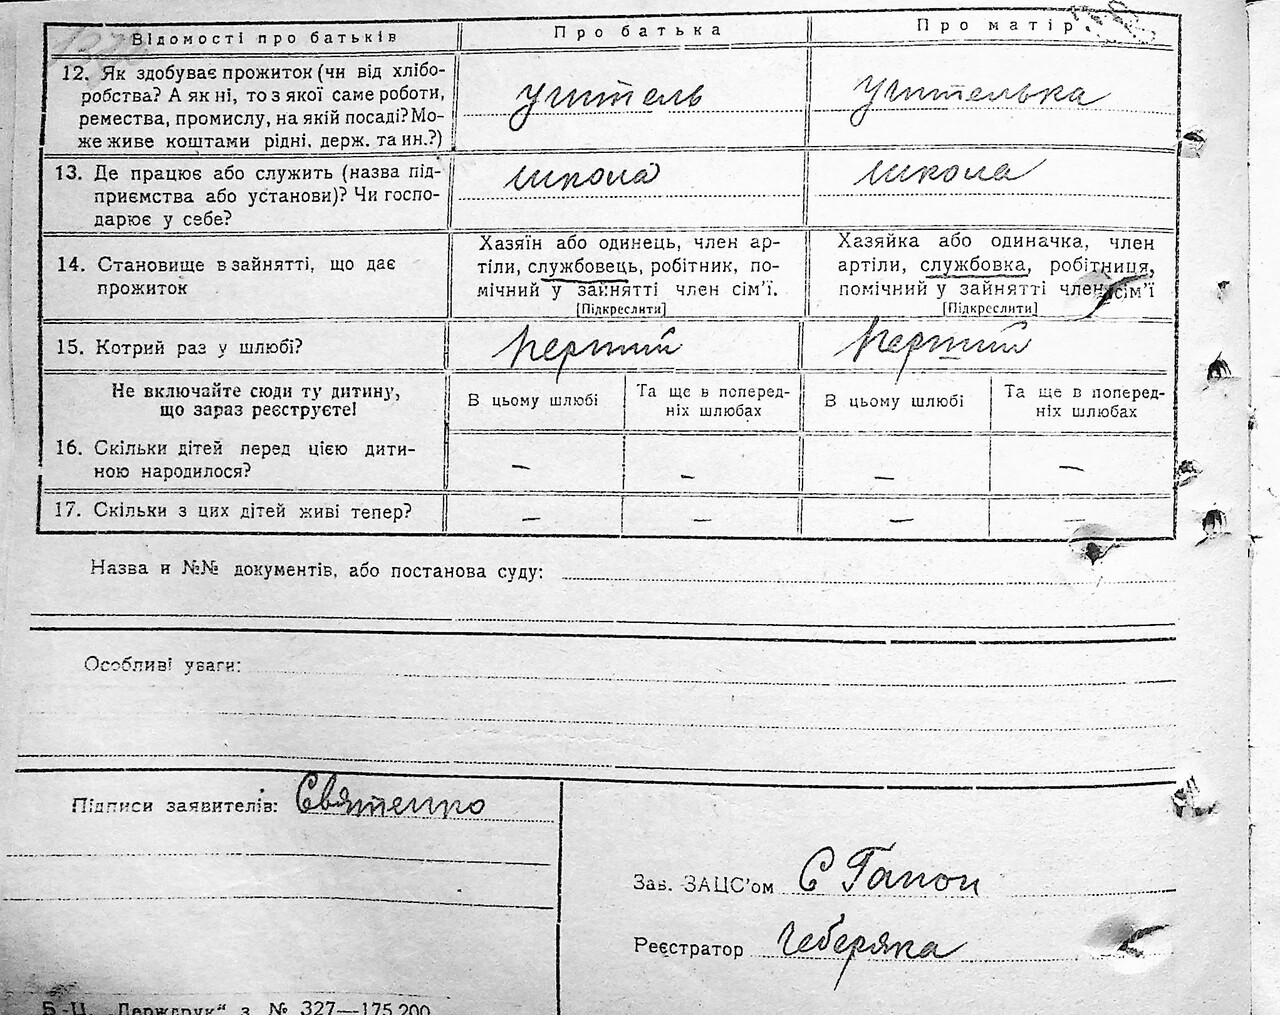 Відомості про батьків Про батька Про матір
12. Як здобуває прожиток (чи від хлібо-
робства? А як ні, то з якої саме роботи,
ремества, промислу, на якій посаді? Мо-
же живе коштами рідні, держ. та ин.?)
учитель учителька
13. Де працює або служить (назва під-
приємства або установи)? Чи госпо-
дарює у себе?
школа школа
14. Становище в зайнятті, що дає
прожиток
Хазяїн або одинець, член ар-
тіли, службовець, робітник, по-
мічний у зайнятті член сім'ї.
[Підкреслити]
Хазяйка або одиначка, член
артіли, службовка, робітниця,
помічний у зайнятті член сім'ї
[Підкреслити]
15. Котрий раз у шлюбі? перший перший
Не включайте сюди ту дитину,
що зараз реєструєте!
В цьому шлюбі
Та ще в поперед-
ніх шлюбах
В цьому шлюбі
Та ще в поперед-
ніх шлюбах
16. Скільки дітей перед цією дити-
ною народилося?
— — — —
17. Скільки з цих дітей живі тепер? — — — —
Назва и №№ документів, або постанова суду:
Особливі уваги:
Підписи заявителів: Святенко
Зав. ЗАЦС'ом С Гапон
Реєстратор Чеберяка
Б.-Ц. „Держдрук" з. № 327—175.200